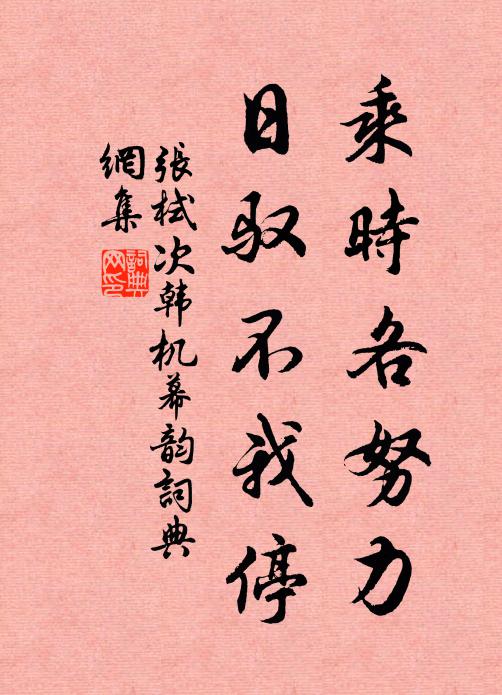 乘時各努力
日驭不我停
張栻次韩机幕韵詞典
網集
詞典
网印